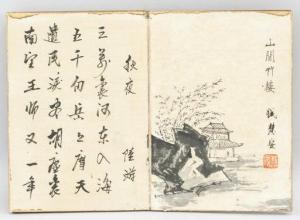 山間竹樓
秋夜 陸游
三萬里河東入海
五千仞岳上摩天
遺民淚盡胡塵裏
南望王師又一年